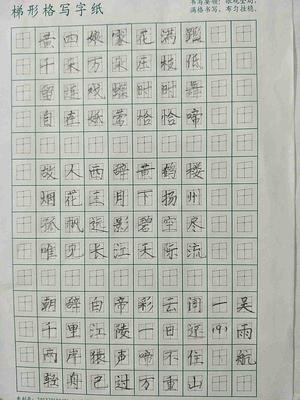 梯形格写字纸
书写要领：眼观全局，
满格书写，布匀挂稳。
黄四娘家花满蹊
千朵万朵压枝低
留连戏蝶时时舞
自在娇莺恰恰啼
故人西辞黄鹤楼
烟花三月下扬州
孤帆远影碧空尽
唯见长江天际流
朝辞白帝彩云间一吴
千里江陵一日还(9)雨
两岸猿声啼不住航
轻舟已过万重山